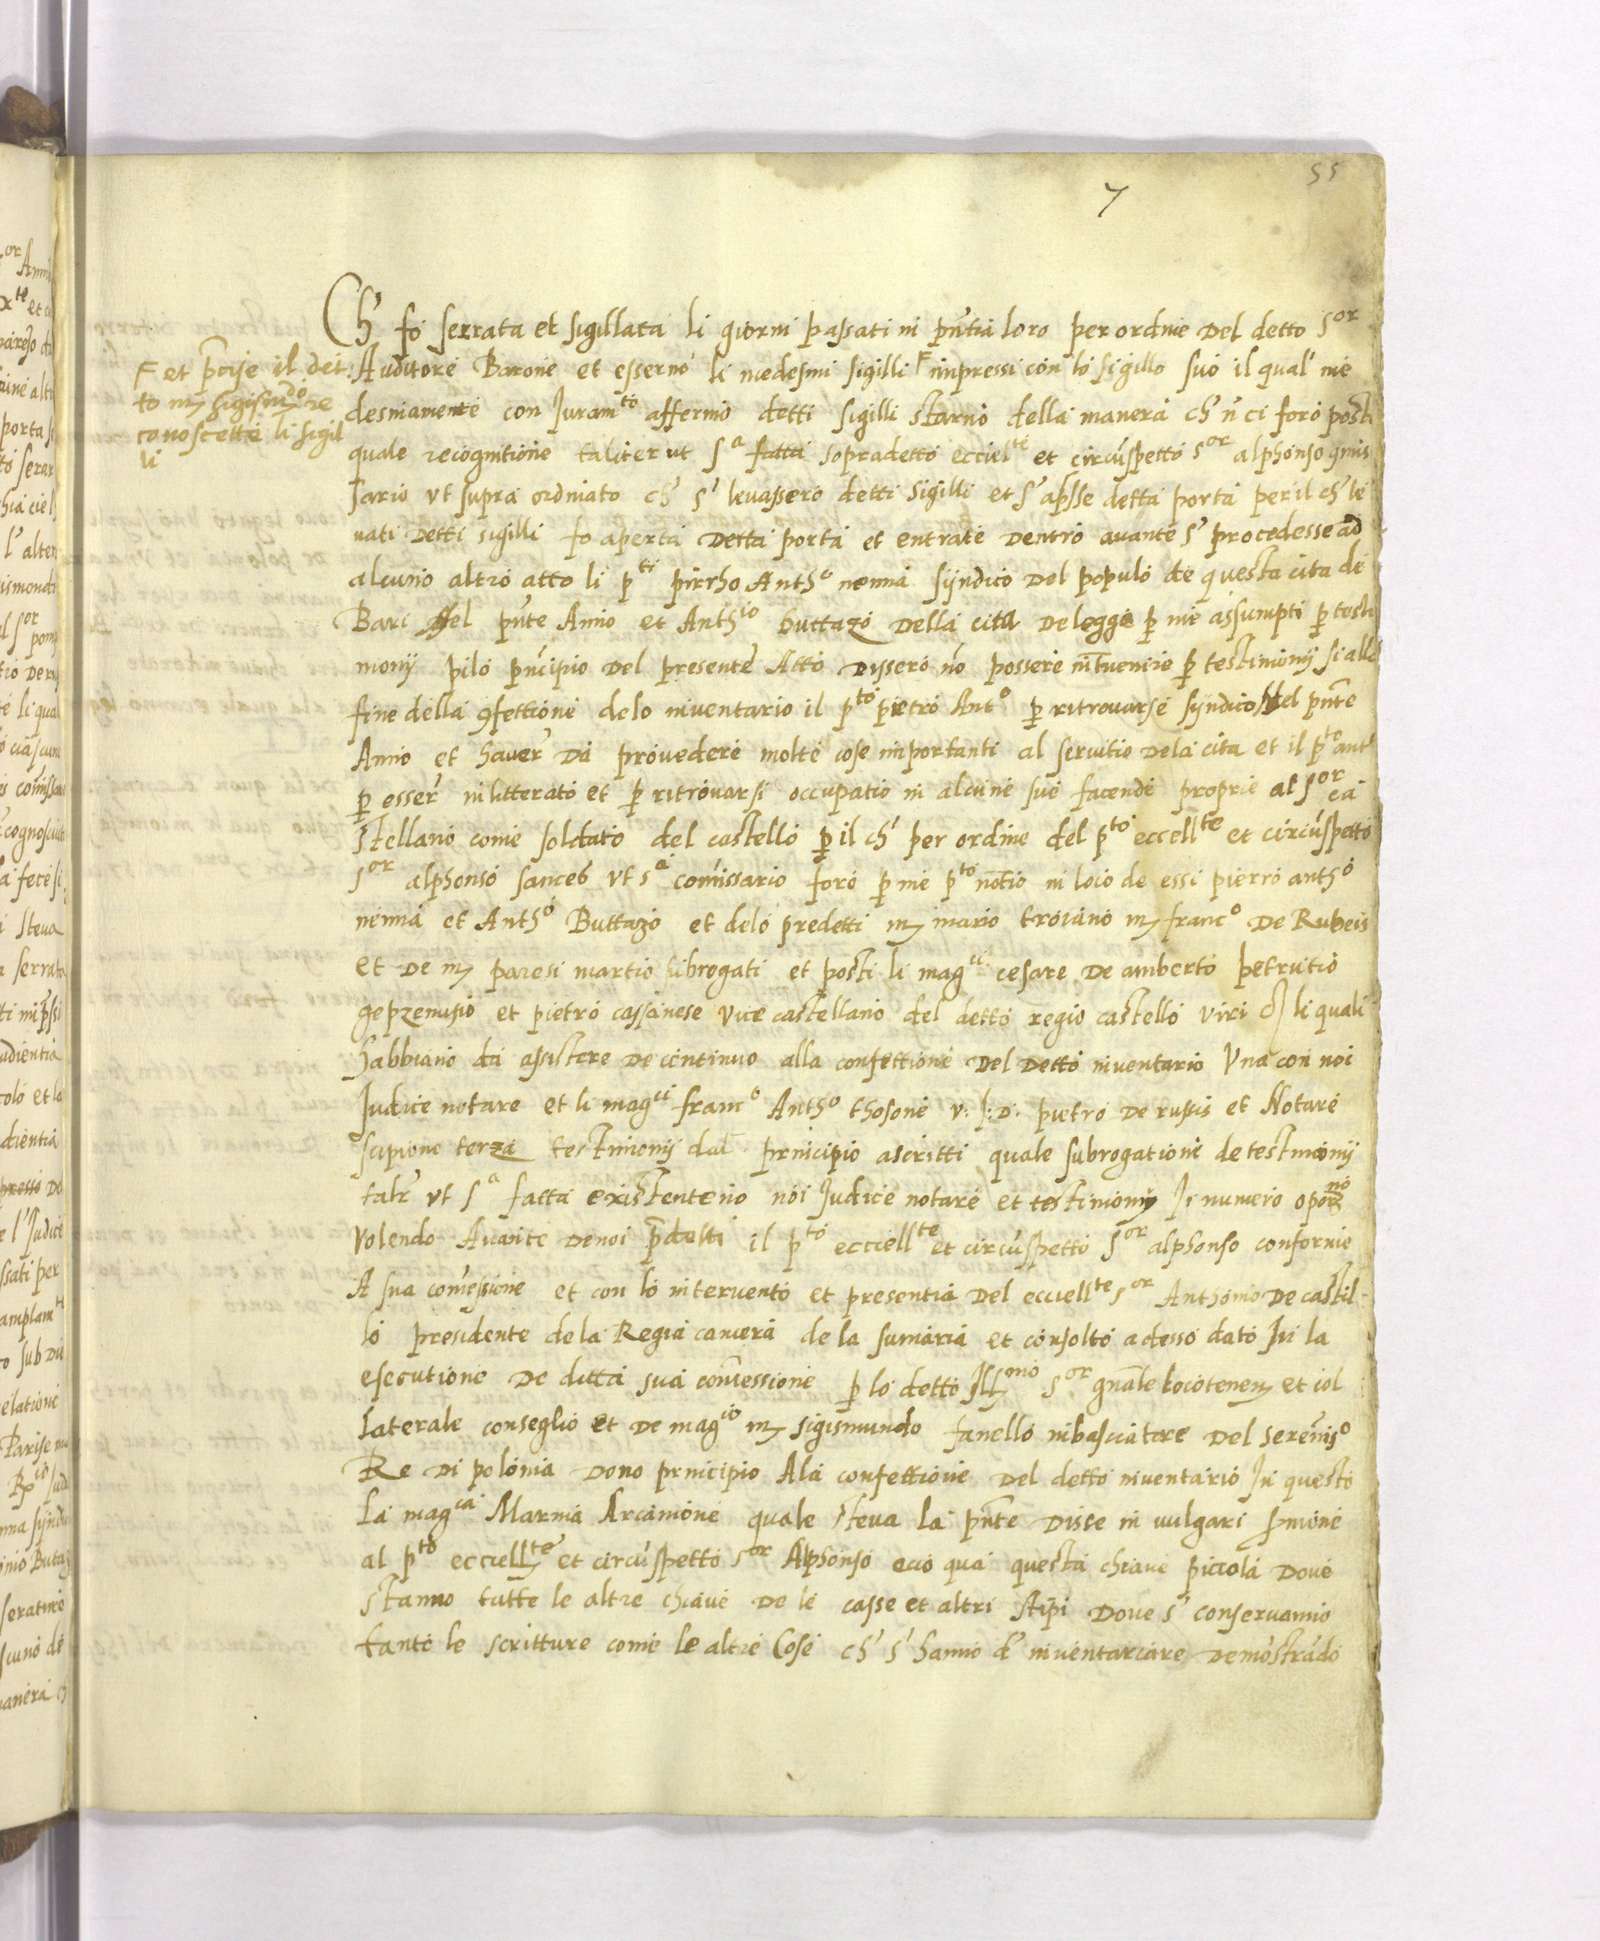 7
55
Ch' fó serrata et sigillata li giorni passati in pñtia loro per ordine del detto Sor
Auditore Barone et esserno li medesmi sigilli F impressi con lo sigillo suo il qual' me
desmamente con Juramto affermò detti sigilli starno della manera ch' ñ ci foro posti
quale recognitione taliter ut Sa fatta sopradetto eccielte et circũspetto Sor alphonso 9mis
sario ut supra ordinato ch' s' levassero detti sigilli et s' apsse detta porta per il ch' le
vati detti sigilli fo aperta detta porta et entrate dentro avante s' procedesse ad
alcuno altro atto li pti pirrho Antho nenna sÿndico del populo de questa cita de
Bari del pñte Anno et Anthio buttazo della cita de legge p me assumpti p testi
monij pilo pñcipio del presente Atto dissero nõ possere intvenire p testimonij si alla
fine della 9fettione delo inventario il pto pietro Anto p ritrovarse sÿndico del pñte
Anno et haver da provedere molte cose importanti al servitio dela cita et il pto anto
p esser inlitterato et p ritrovarsi occupatio in alcune sue facende proprie al Sor ca
stellano come soldato del castello p il ch' per ordine del pto eccellte et circũspetto
Sor alphonso sances ut sa comissario foro p me pto notio in loco de essi pierro antho
nenna et Antho Buttazo et delo predetti m mario troiano m franco de Rubeis
et de m paresi martio subrogati et posti li magci cesare de amberto petrutio
geprenusio et pietro cassanese vice castellano del detto regio castello viri li quali
habbiano da assistere de continuo alla confettione del detto inventario una con noi
Judice notare et li magci franco Antho thosone v: J: D: pietro de russis et Notare
scipione terza testimonij dal principio ascritti quale subrogatione de testimonij
talr ut sa fatta existenteno noi Judice notare et testimonij In numero oporno
volendo Avante de noi p̃detti il pto eccielte et circũspetto Sor alphonso conforme
A sua comessione et con lo intervento et presentia del eccellte sor Anthonio de castil
lo presidente dela Regia camera de la sumaria et consolto adesso dato In la
esecutione de ditta sua comessione p lo detto Illmo sor gñale locotenen et col
laterale conseglio et de magco m sigismundo fanello imbasciatore del sereniso
Re di polonia dono principio Ala confettione del detto inventario In questo
la magca Marina Arcamone quale steva la pñte disse in vulgari smone
al pto eccellte et circũspetto sor Alphonso eccó qua questa chiave piccola dove
stanno tutte le altre chiave de le casse et altri stipi dove s' conservanno
tanto le scritture come le altre cose ch' s' hanno d' inventariare demostrãdo
F et p̃cise il det
to m sigismõdo re
conoscette li sigil
li